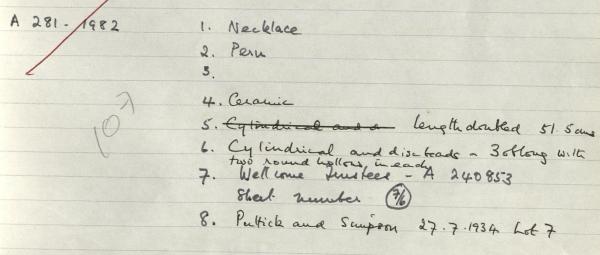 A 281-1982 1. Necklace
2. Peru
3.
107
4. Ceramic
5. Cylindrical and d Length doubled 51.5cms
6. Cylindrical and disc beads - 3 oblong with
two round hollows in each
7. Wellcome Trustees - A 240853
Sheet number 7/6
8. Puttick and Simpson 27.7.1934 Lot 7